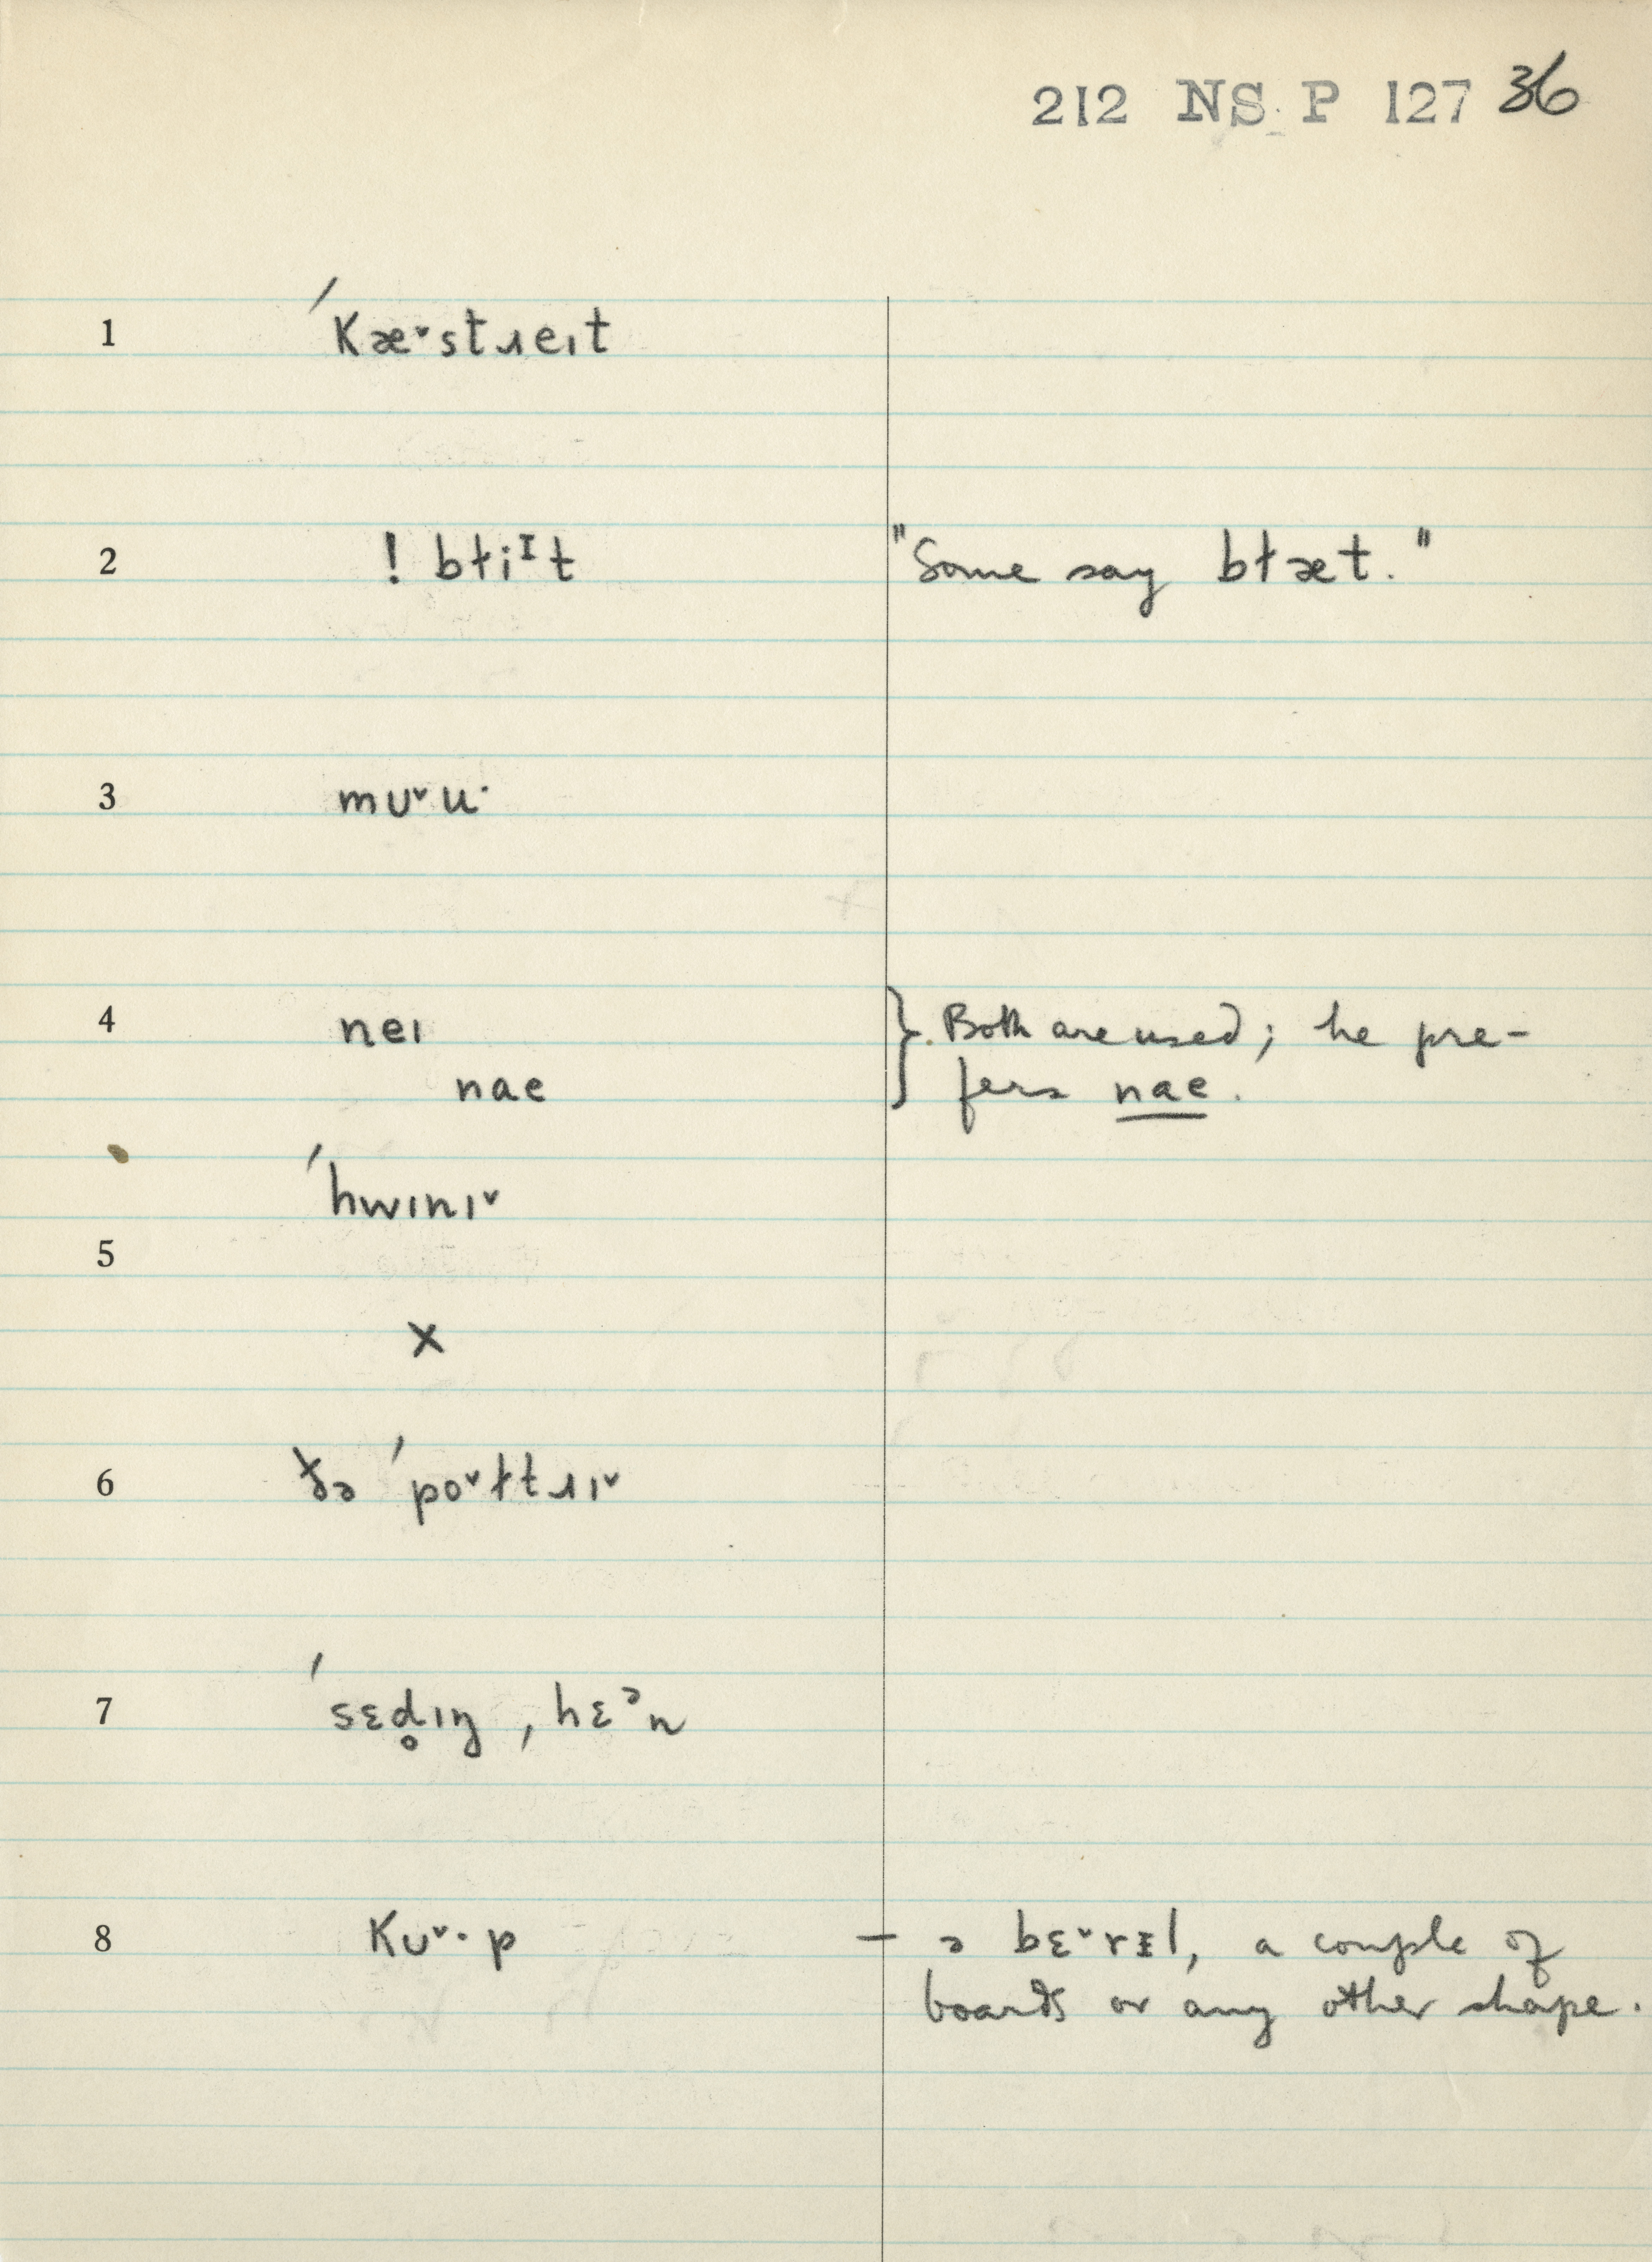 212 NS P 127 36
1 ˈkæ˅stɹeɪt
2 ! bɫiᴵt "Some say bɫæt."
3 mʊ˅u·
4 neɪ } Both are used; he pre-
nae fers nae.
ˈhwɪnɪ˅
5
×
6 ðə ˈpo˅ɫtɹɪ˅
7 ˈsɛd̥ɪŋ, hɛᵊn
8 kʊ˅·p — ə bɛ˅rᵻl, a couple of
boards or any other shape.